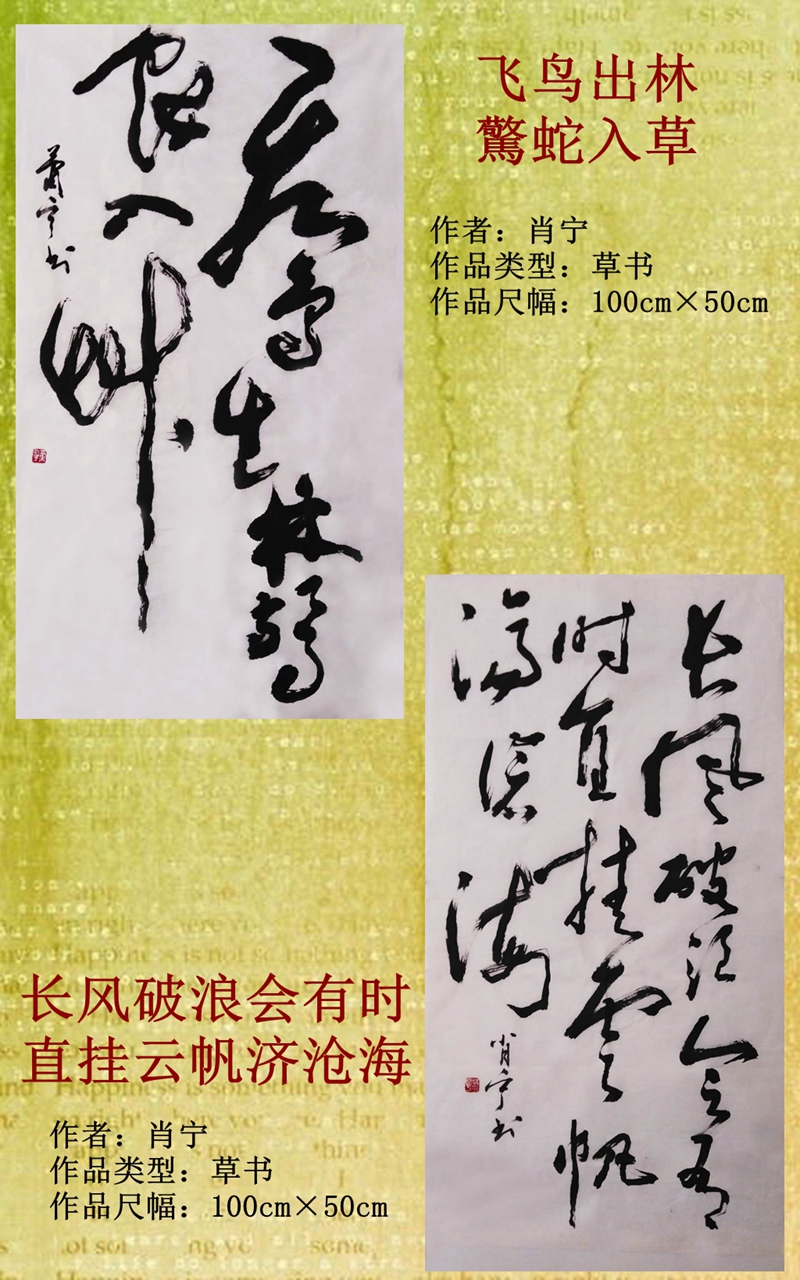 飞鸟出林
驚蛇入草
作者：肖宁
作品类型：草书
作品尺幅：100cm×50cm
飞鸟出林驚
蛇入艸
萧宁书
长风破浪会有
时直挂雲帆
济沧海
肖宁书
长风破浪会有时
直挂云帆济沧海
作者：肖宁
作品类型：草书
作品尺幅：100cm×50cm